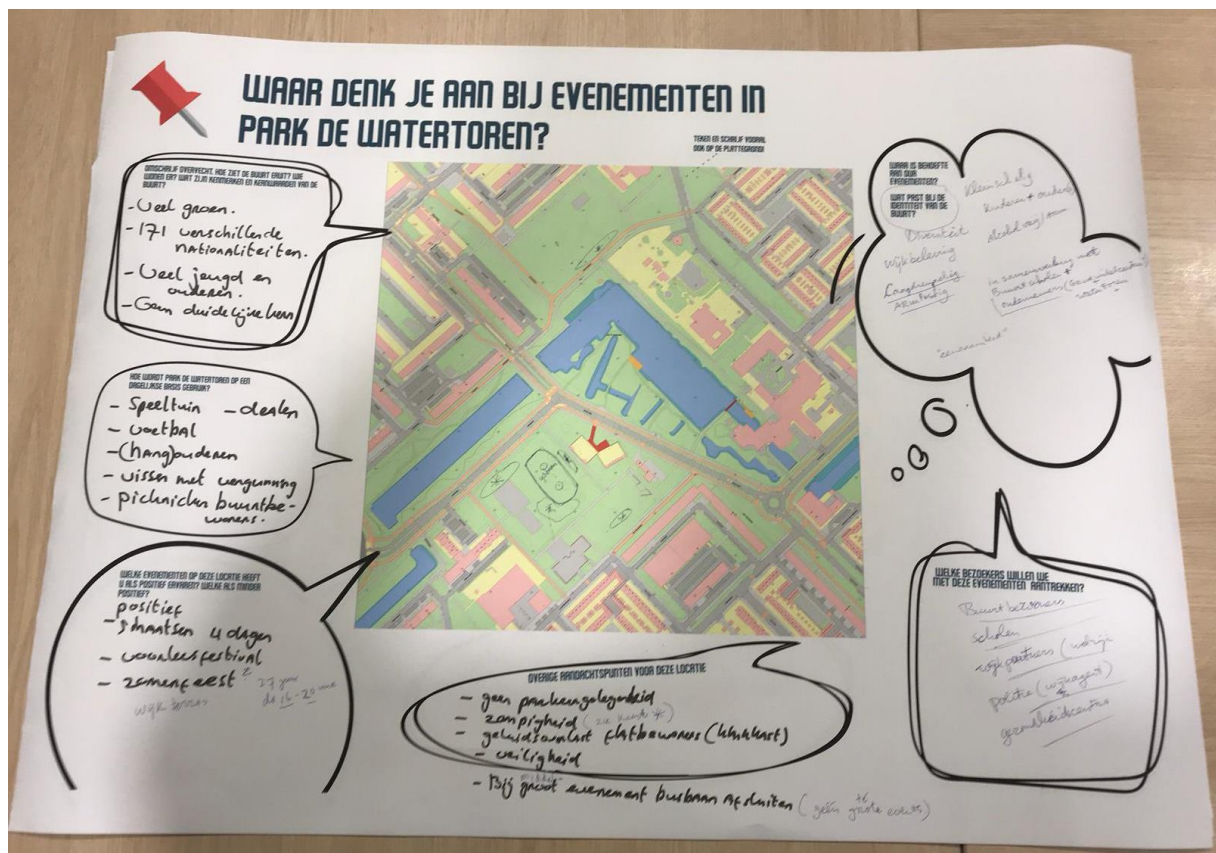 WAAR DENK JE AAN BIJ EVENEMENTEN IN
PARK DE WATERTOREN?
TEKEN EN SCHRIJF VOORAL
OOK OP DE PLATTEGROND!
OMSCHRIJF OVERVECHT. HOE ZIET DE BUURT ERUIT? WIE
WONEN ER? WAT ZIJN KENMERKEN EN KERNWAARDEN VAN DE
BUURT?
- Veel groen.
- 171 verschillende
nationaliteiten.
- Veel jeugd en
ouderen.
- Geen duidelijke kern
HOE WORDT PARK DE WATERTOREN OP EEN
DAGELIJKSE BASIS GEBRUIK?
- Speeltuin - dealen
- voetbal
- (hang)ouderen
- vissen met vergunning
- picknicken buurtbe-
woners.
WELKE EVENEMENTEN OP DEZE LOCATIE HEEFT
U ALS POSITIEF ERVAREN? WELKE ALS MINDER
POSITIEF?
positief
- 4 dagen
- voorleesfestival
- zomerfeest
27 juni
do 16-20 uur
wijk
OVERIGE AANDACHTSPUNTEN VOOR DEZE LOCATIE
- geen parkeergelegenheid
- zompigheid (zie kaart *)
- geluidsoverlast flatbewoners (klankkast)
- veiligheid
- Bij groot evenement busbaan afsluiten (geen té grote events)
middel-
WAAR IS BEHOEFTE
AAN QUA
EVENEMENTEN?
WAT PAST BIJ DE
IDENTITEIT VAN DE
BUURT?
Kleinschalig
Kinderen + ouderen
Alcohol
Diversiteit
Wijkbeleving
Laagdrempelig
in samenwerking met
Buurt scholen +
ondernemers
WELKE BEZOEKERS WILLEN WE
MET DEZE EVENEMENTEN AANTREKKEN?
Buurtbewoners
Scholen
wijkpartners (welzijn
politie (wijkagent)
gezondheidscentra